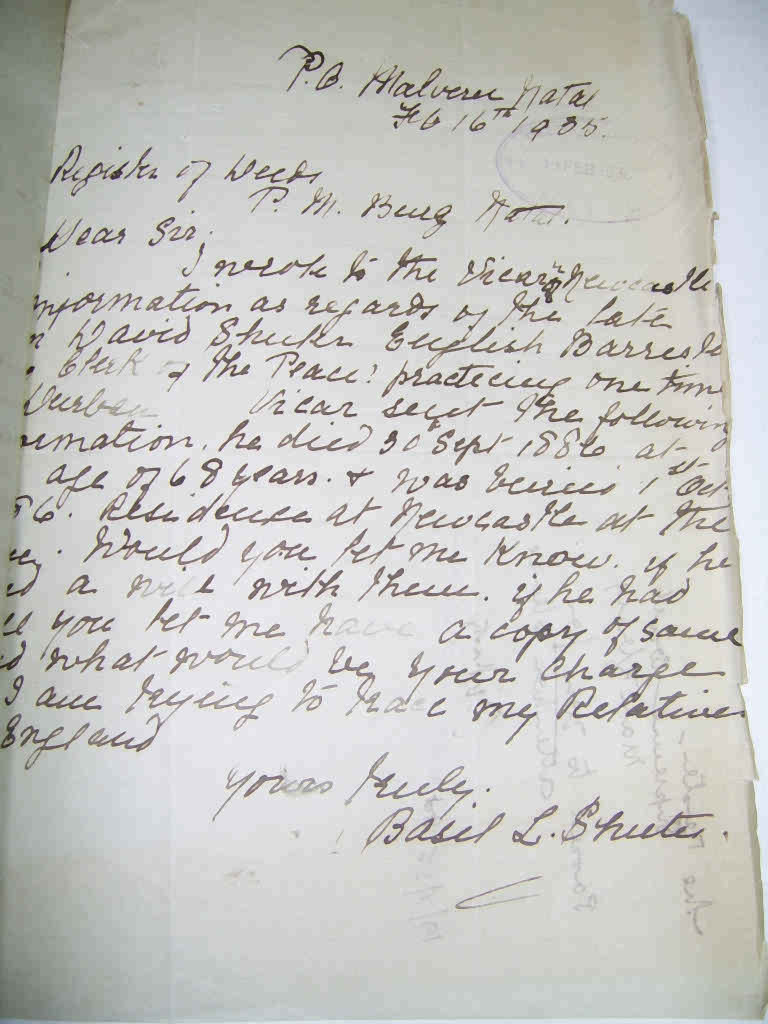 P.O. Malvern Natal
Feb 16th 1935.
Register of Deeds
P. M. Burg Natal.
Dear Sir,
I wrote to the Vicar Newcastle
information as regards of the late
David Shuter English Barrister
Clerk of the Peace practicing one time
Durban Vicar sent the following
rmation. he died 30th Sept 1886 at
age of 68 years. & was buried 1st Oct
86. Residence at Newcastle at the
Would you let me know. if he
a will with them. if he had
you let me have a copy of same
what would be your charge
I am trying to trace my Relatives
England
Yours truly.
Basil L. Shuter.